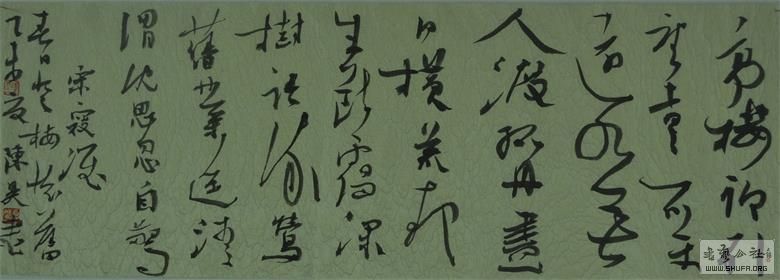 高樓聊引
望杳杳一川平
野水無
人渡孤舟盡
日橫荒村
生斷靄深
樹語流鶯
舊業遥清
渭沈思忽自驚
宋寇準
春日登樓懷舊
乙未夏陳昊書
WWW.SHUFA.ORG